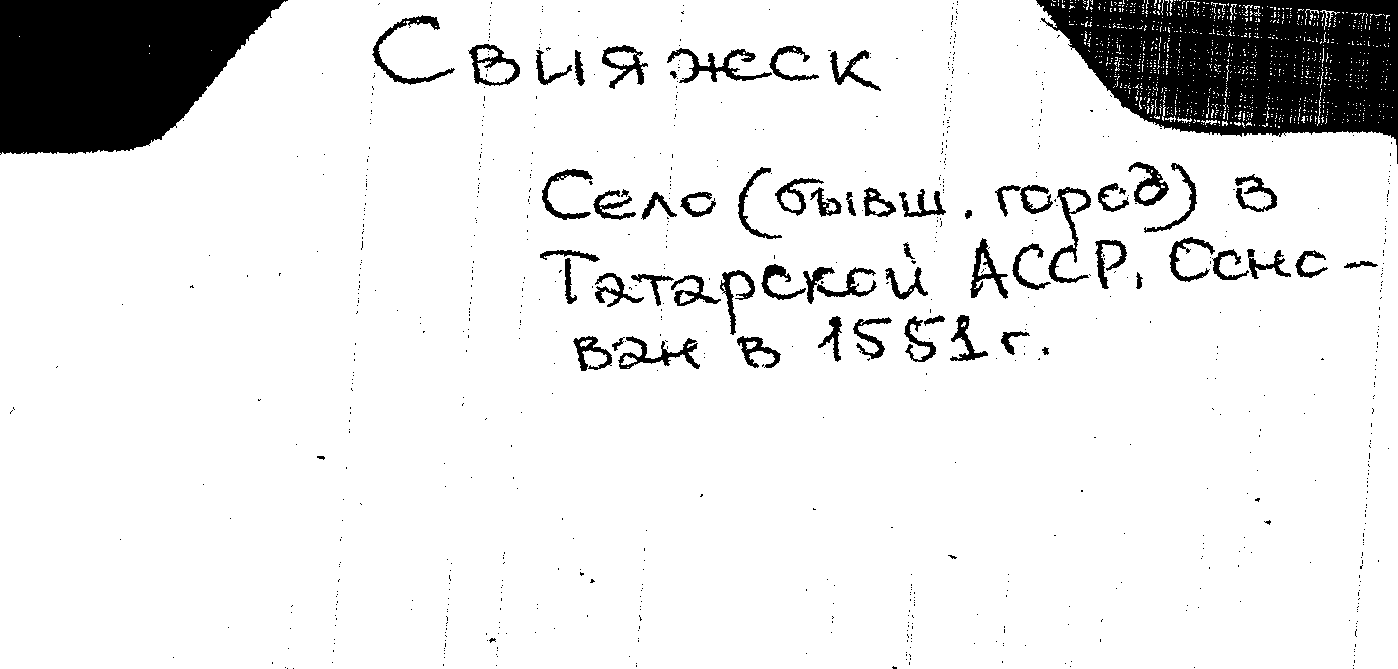 Свияжск
Село (бывш. город) в
Татарской АССР. Осно-
ван в 1551 г.